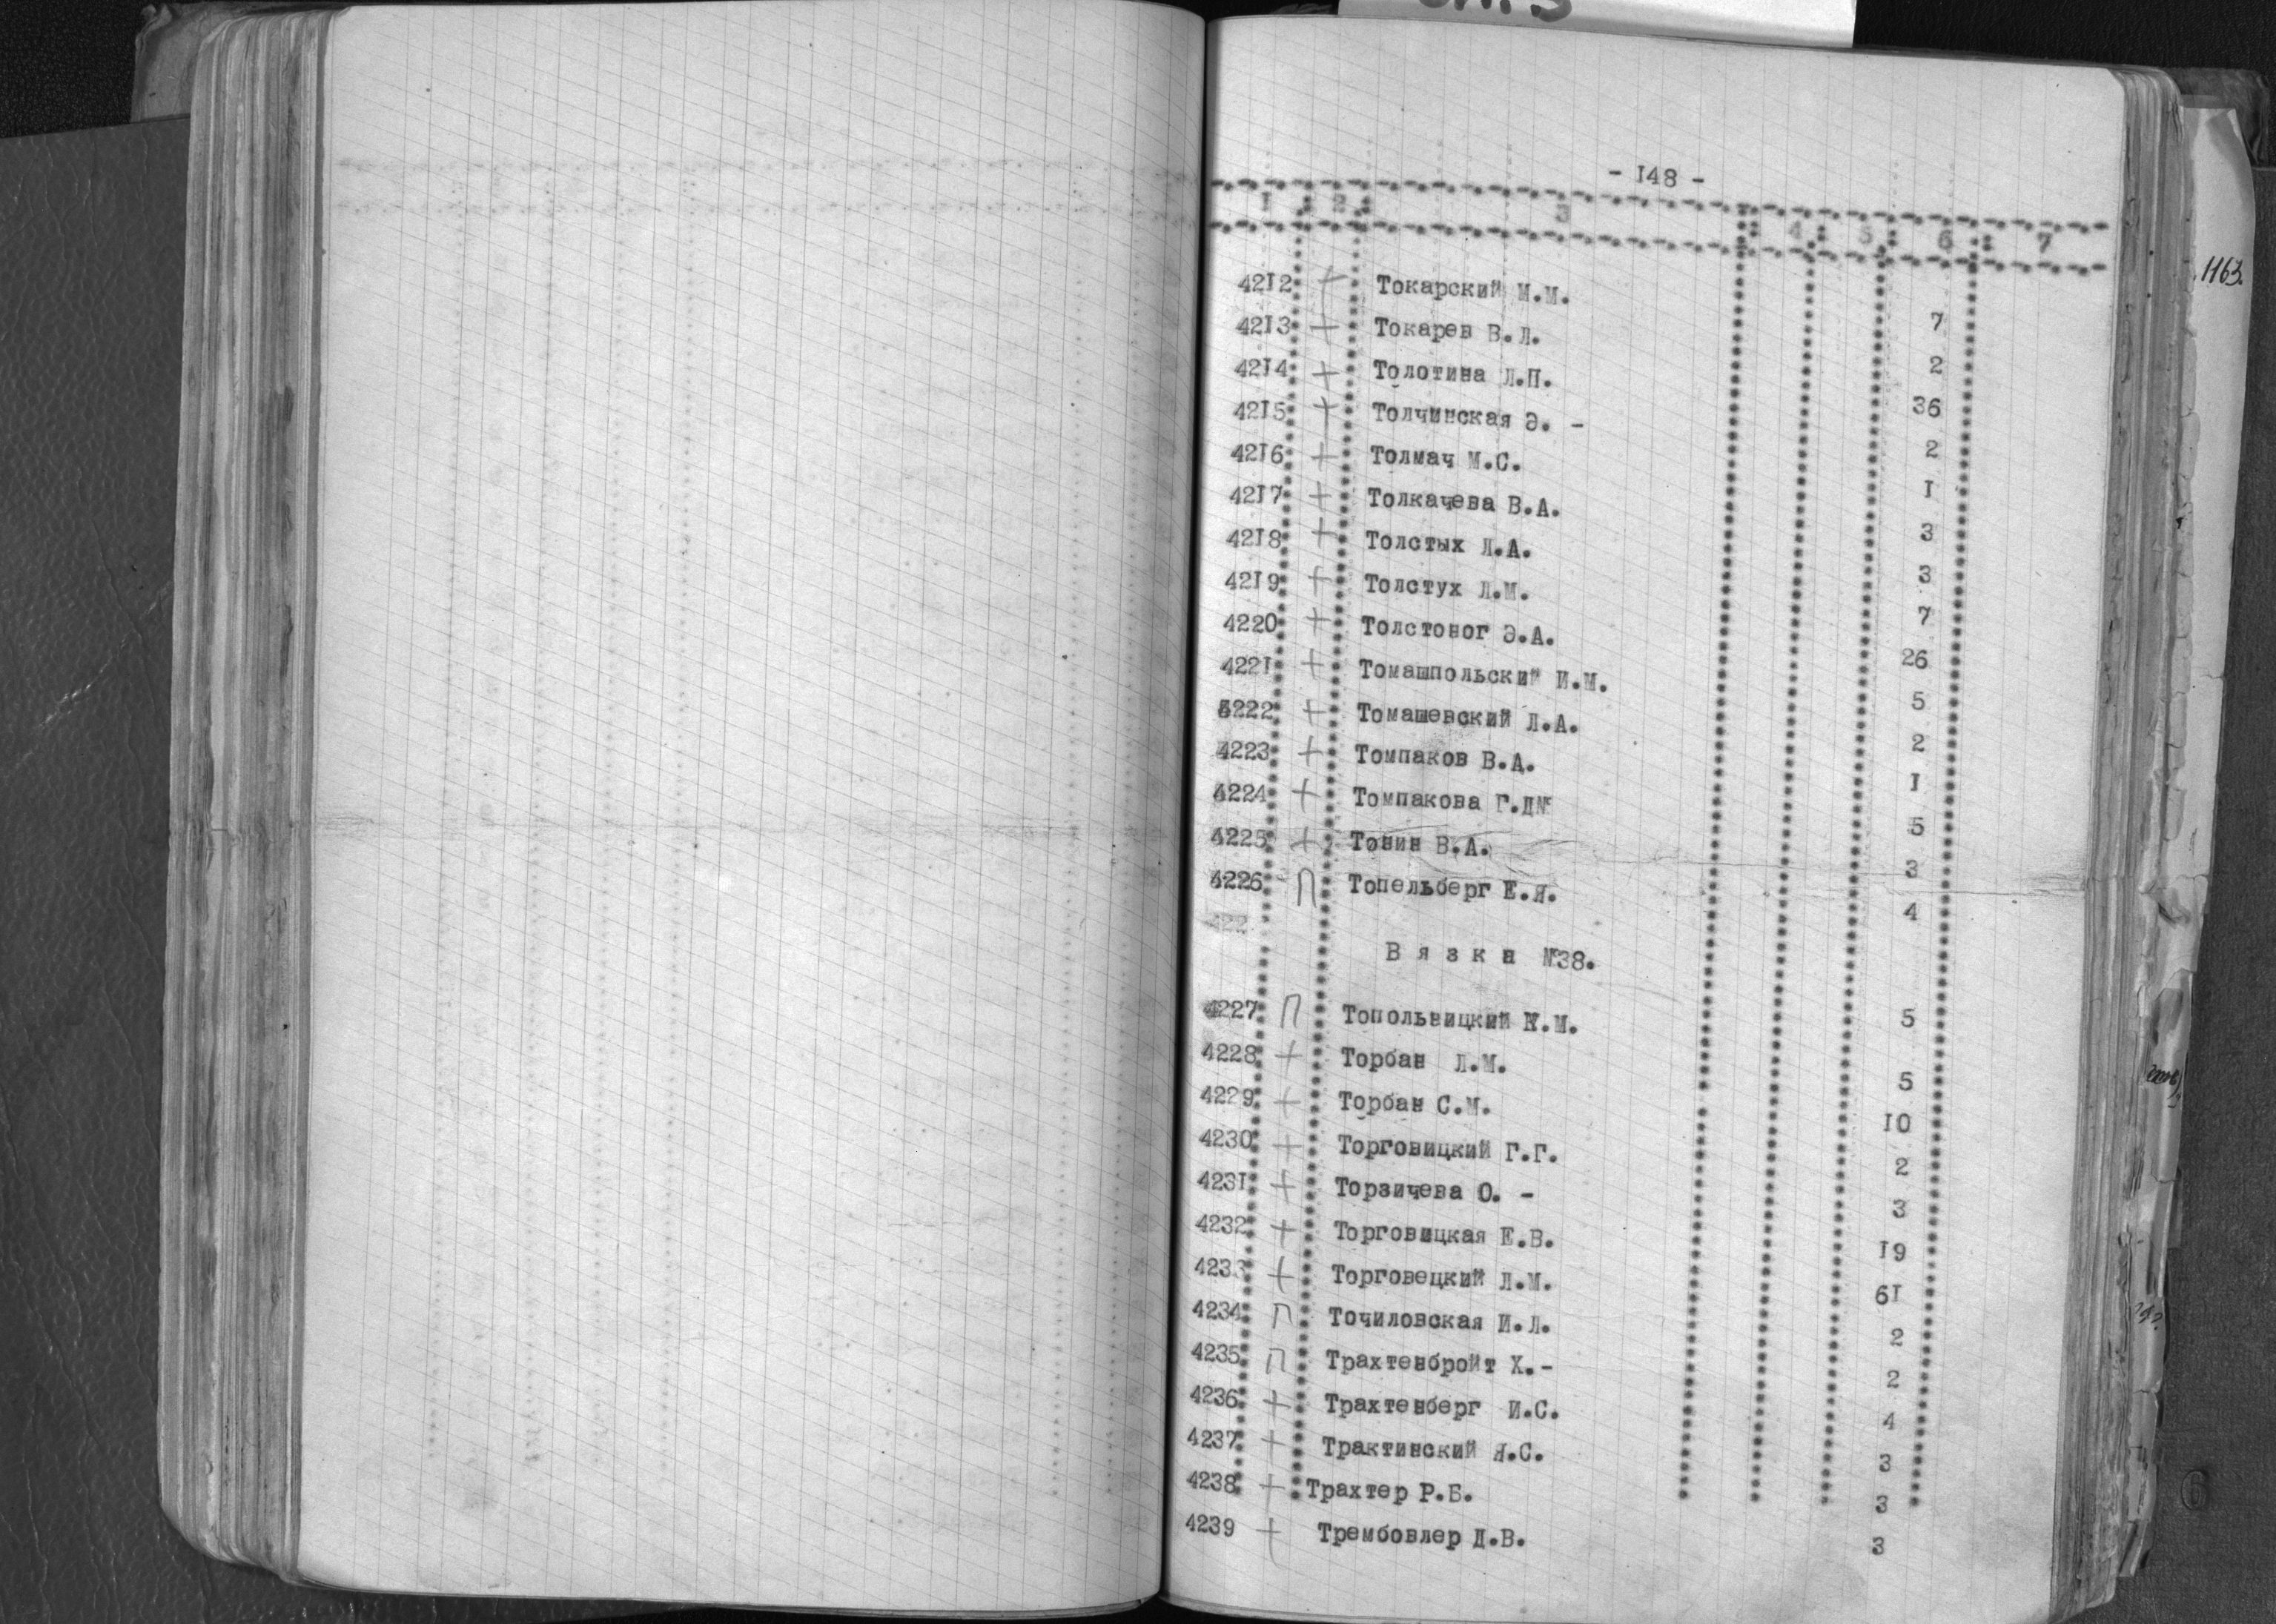 - I48 -
1 2 3 4 5 6 7
42I2 + Токарский М.М. 7
42I3 + Токарев В.Л. 2
42I4 + Толотина Л.П. 36
42I5 + Толчинская Э. - 2
42I6 + Толмач М.С. I
42I7 + Толкачева В.А. 3
42I8 + Толстых Л.А. 3
42I9 + Толстух Л.М. 7
4220 + Толстоног Э.А. 26
422I + Томашпольский И.М. 5
4222 + Томашевский Л.А. 2
4223 + Томпаков В.А. I
4224 + Томпакова Г.Д№ 5
4225 + Тонин В.А. 3
4226 П Топельберг Е.Я. 4
422
Вязка №38.
4227 П Топольницкий М.М. 5
4228 + Торбан Л.М. 5
4229 + Торбан С.М. I0
4230 + Торговицкий Г.Г. 2
423I + Торзичева О. - 3
4232 + Торговицкая Е.В. I9
4233 + Торговецкий Л.М. 6I
4234 П Точиловская И.Л. 2
4235 П Трахтенбройт Х.- 2
4236 + Трахтенберг И.С. 4
4237 + Трактинский Я.С. 3
4238 + Трахтер Р.Б. 3
4239 + Трембовлер Д.В. 3
1163.
6